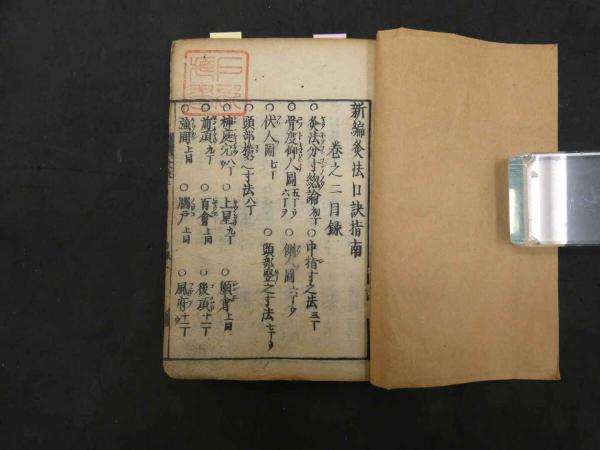 新編灸法口訣指南
巻之二目録
○灸法分寸總論 初丁 ○中指寸之法 三丁
○骨度仰人圖 五丁ヲ 六丁ヲ ○側人圖 六丁ウ
○伏人圖 七丁 ○頭部竪之寸法 七丁ウ
○頭部橫之寸法 八丁
○神庭穴 八丁 ○上星 九丁 ○顖會 上同
○前頂 九丁 ○百會 上同 ○後頂 十一丁
○強間 上同 ○腦戸 上同 ○風府 十一丁